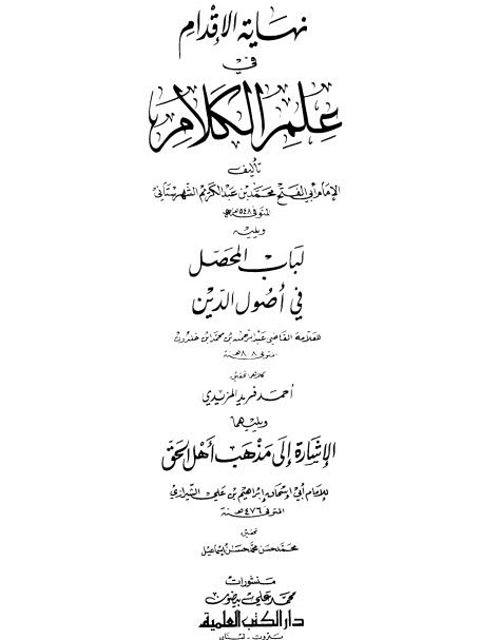 نهاية الإقدام
في
علم الكلام
تأليف
الإمام أبي الفتح محمد بن عبد الكريم الشهرستاني
المتوفى ٥٤٨ هـ
ويليه
لباب المحصل
في أصول الدين
للعلامة القاضي عبد الرحمن بن محمد ابن خلدون
المتوفى ٨٠٨ هـ سنة
كلاهما تحقيق
أحمد فريد المزيدي
ويليهما
الإشارة إلى مذهب أهل الحق
للإمام أبي إسحاق إبراهيم بن علي الشيرازي
المتوفى ٤٧٦ هـ سنة
تحقيق
محمد حسن محمد حسن إسماعيل
منشورات
محمد علي بيضون
دار الكتب العلمية
بيروت - لبنان